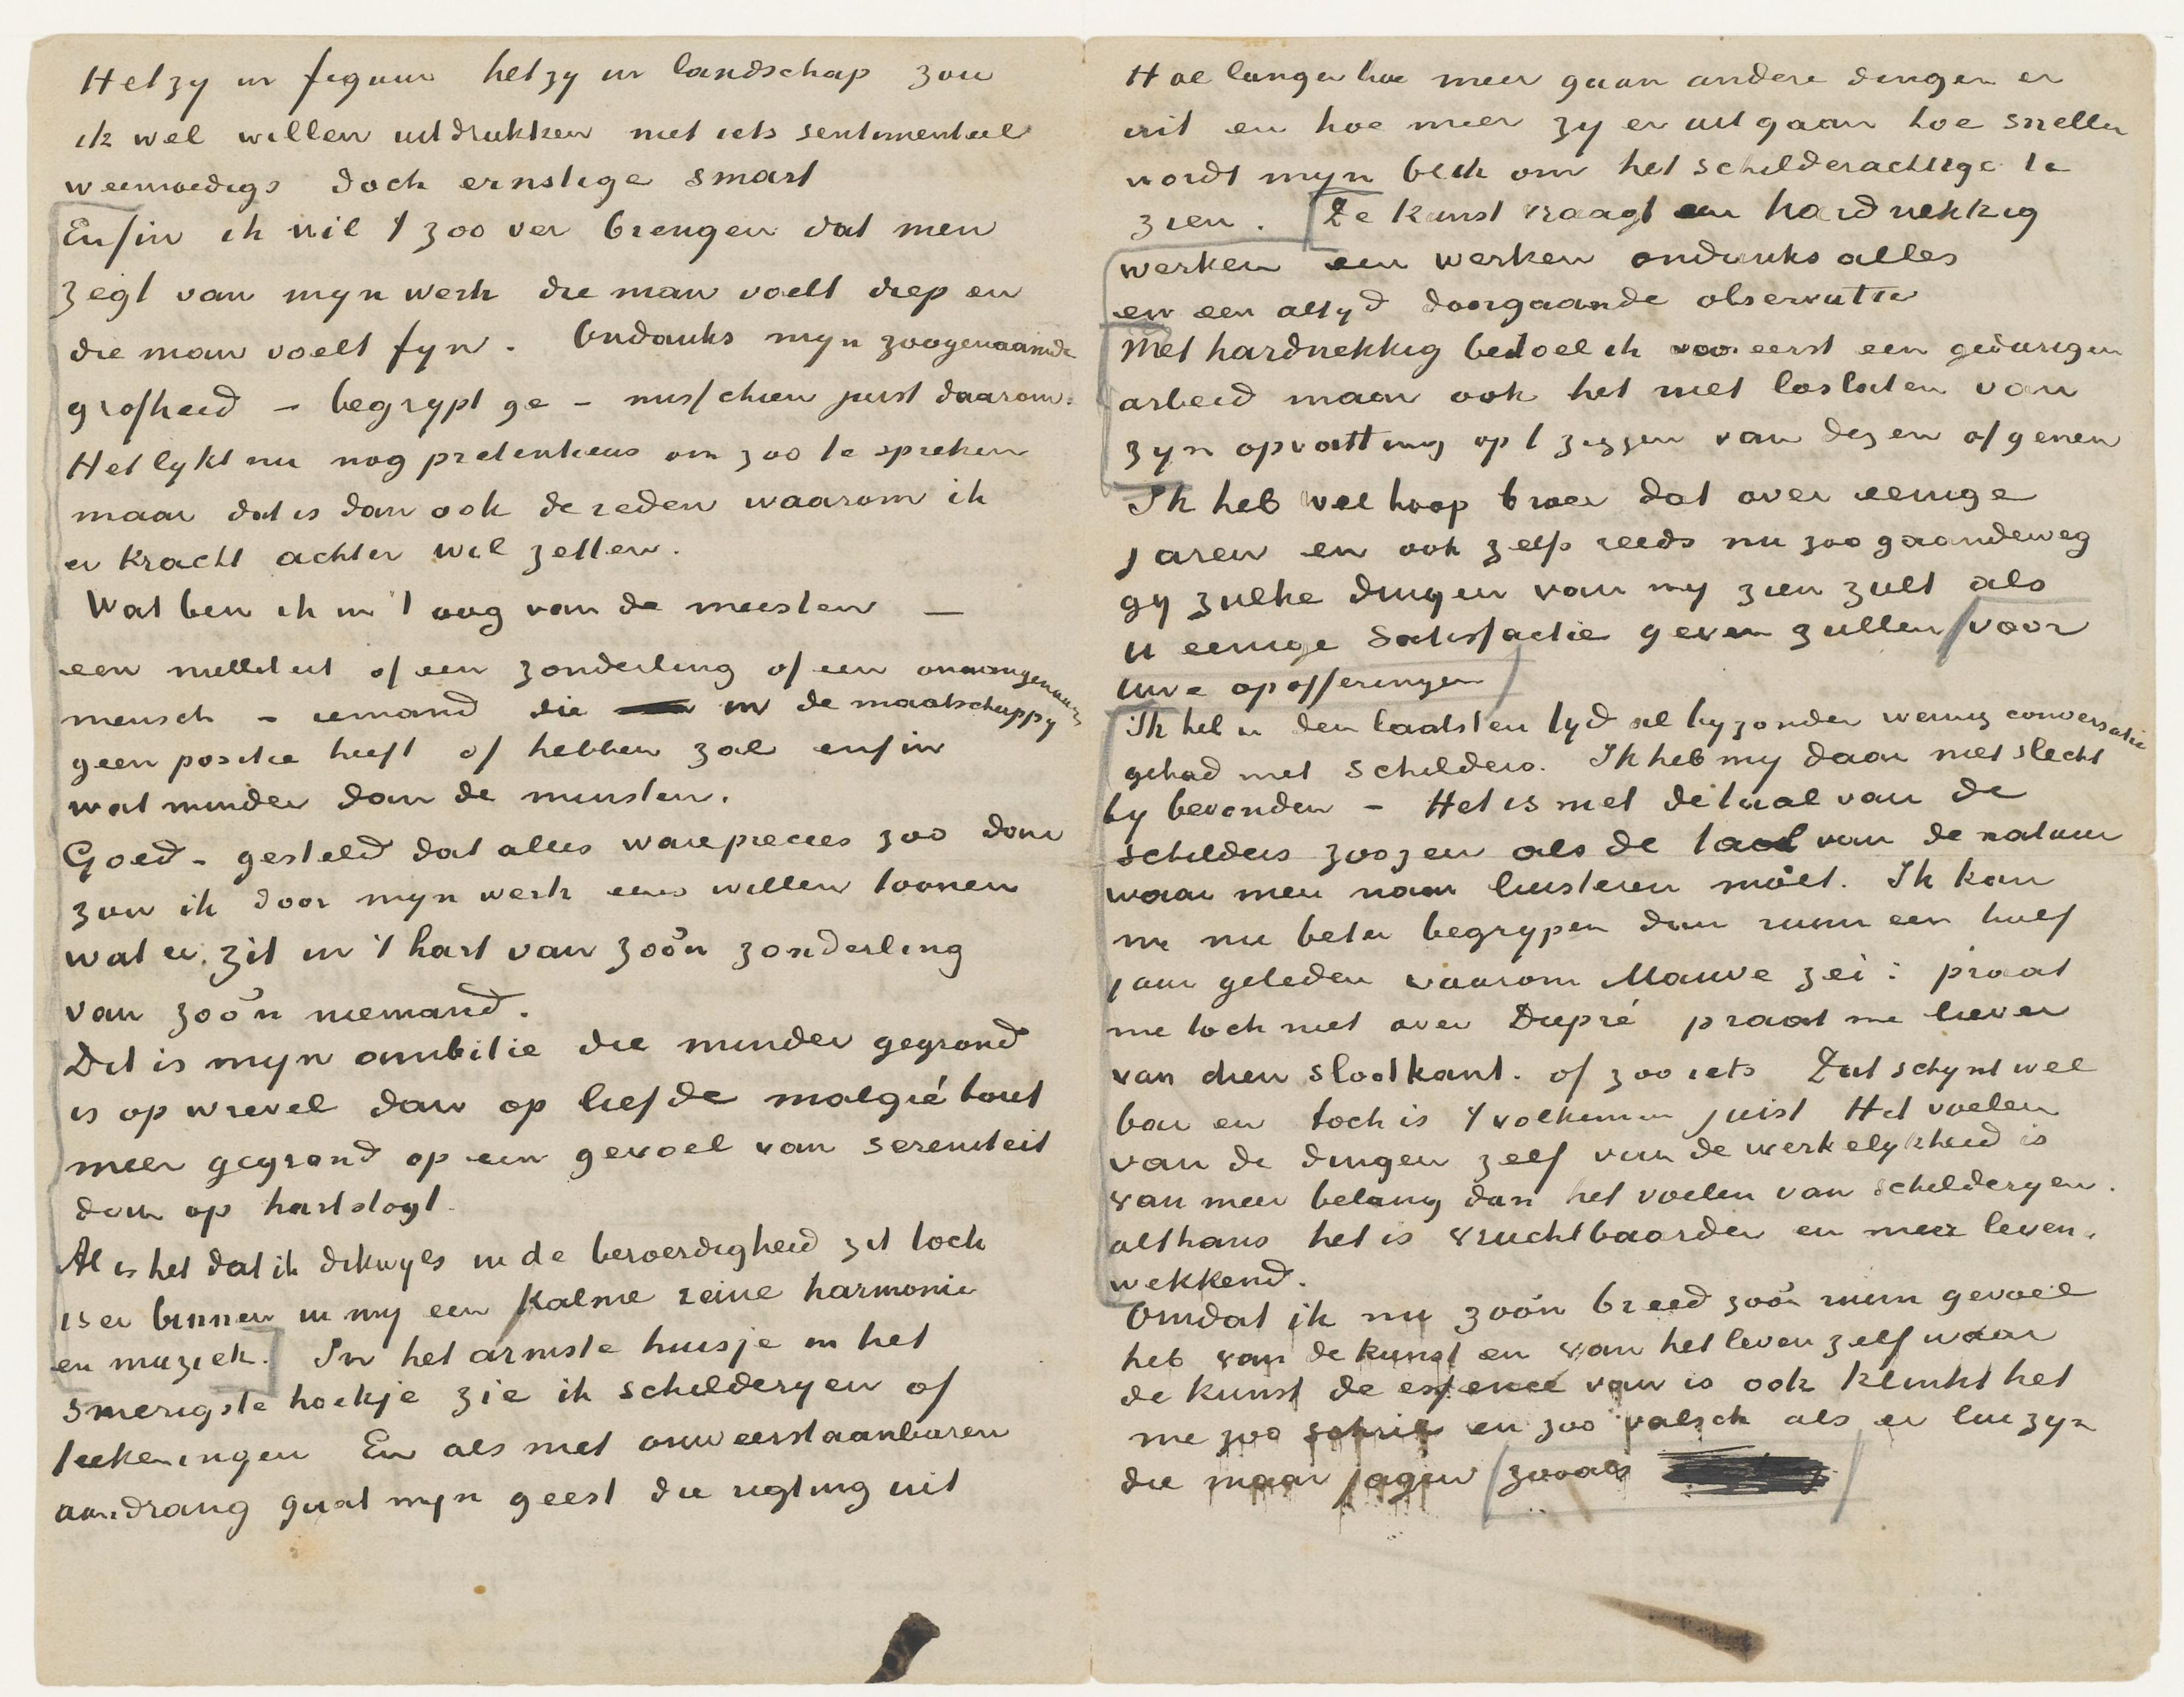 Hetzy in figuur hetzy in landschap zou
ik wel willen uitdrukken niet iets sentimenteel
weemoedigs doch ernstige smart
Enfin ik wil 't zoo ver brengen dat men
zegt van myn werk die man voelt diep en
die man voelt fyn. Ondanks myn zoogenaamde
grofheid – begrypt ge – misschien juist daarom.
Het lykt nu nog pretentieus om zoo te spreken
maar dat is dan ook de reden waarom ik
er kracht achter wil zetten.
Wat ben ik in 't oog van de meesten —
een nulliteit of een zonderling of een onaangenaam
mensch – iemand die in de maatschappy
geen positie heeft of hebben zal enfin
wat minder dan de minsten.
Goed – gesteld dat alles ware precies zoo dan
zou ik door myn werk eens willen toonen
wat er zit in 't hart van zoo'n zonderling
van zoo'n niemand.
Dit is myn ambitie die minder gegrond
is op wrevel dan op liefde malgré tout
meer gegrond op een gevoel van sereniteit
dan op hartstogt.
Al is het dat ik dikwyls in de beroerdigheid zit toch
is er binnen in my een kalme reine harmonie
en muziek. In het armste huisje in het
smerigste hoekje zie ik schilderyen of
teekeningen En als met onweerstaanbaren
aandrang gaat myn geest die rigting uit
Hoe langer hoe meer gaan andere dingen er
uit en hoe meer zy er uit gaan hoe sneller
wordt myn blik om het schilderachtige te
zien. De kunst vraagt een hardnekkig
werken een werken ondanks alles
en een altyd doorgaande observatie
Met hardnekkig bedoel ik vooreerst een gedurigen
arbeid maar ook het niet loslaten van
zyn opvatting op 't zeggen van dezen of genen
Ik heb wel hoop broer dat over eenige
jaren en ook zelfs reeds nu zoo gaandeweg
gy zulke dingen van my zien zult als
u eenige satisfactie geven zullen voor
uwe opofferingen
Ik heb in den laatsten tyd al byzonder weinig conversatie
gehad met schilders. Ik heb my daar niet slecht
by bevonden – Het is niet de taal van de
schilders zoozeer als de taal van de natuur
waar men naar luisteren moet. Ik kan
me nu beter begrypen dan ruim een half
jaar geleden waarom Mauve zei: praat
me toch niet over Dupré praat me liever
van dien slootkant. of zoo iets Dat schynt wel
bar en toch is 't volkomen juist Het voelen
van de dingen zelf van de werkelykheid is
van meer belang dan het voelen van schilderyen.
althans het is vruchtbaarder en meer leven-
wekkend.
Omdat ik nu zoo'n breed zoo'n ruim gevoel
heb van de kunst en van het leven zelf waar
de kunst de essence van is ook klinkt het
me zoo schril en zoo valsch als er lui zyn
die maar jagen zooals